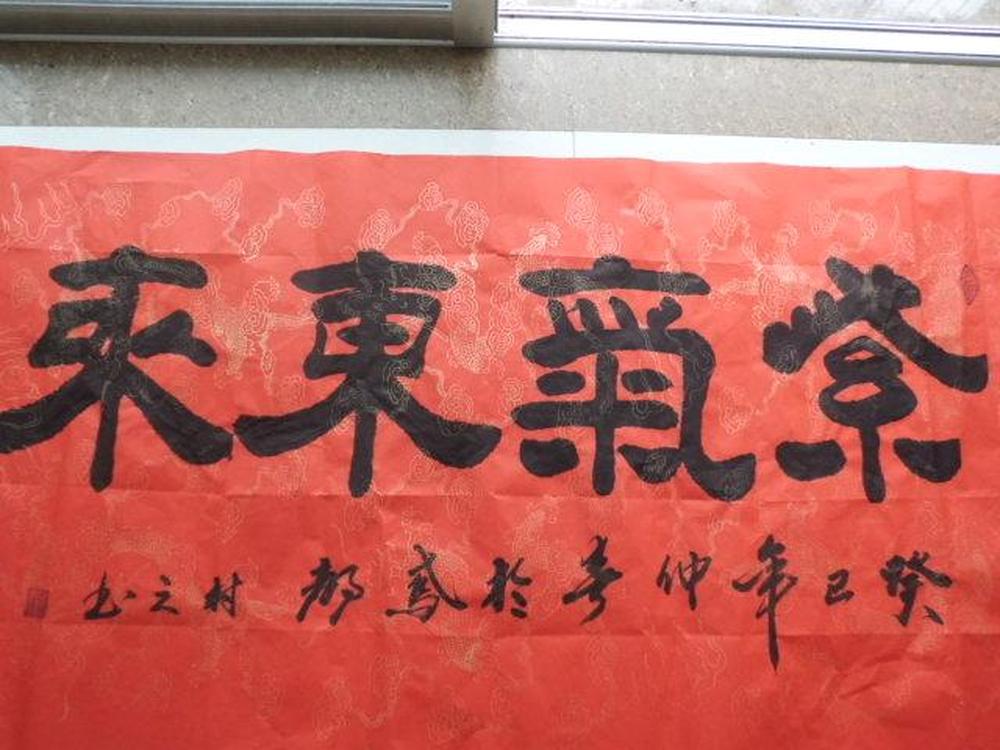 紫氣東來
癸巳年仲春於鳶都 村之书